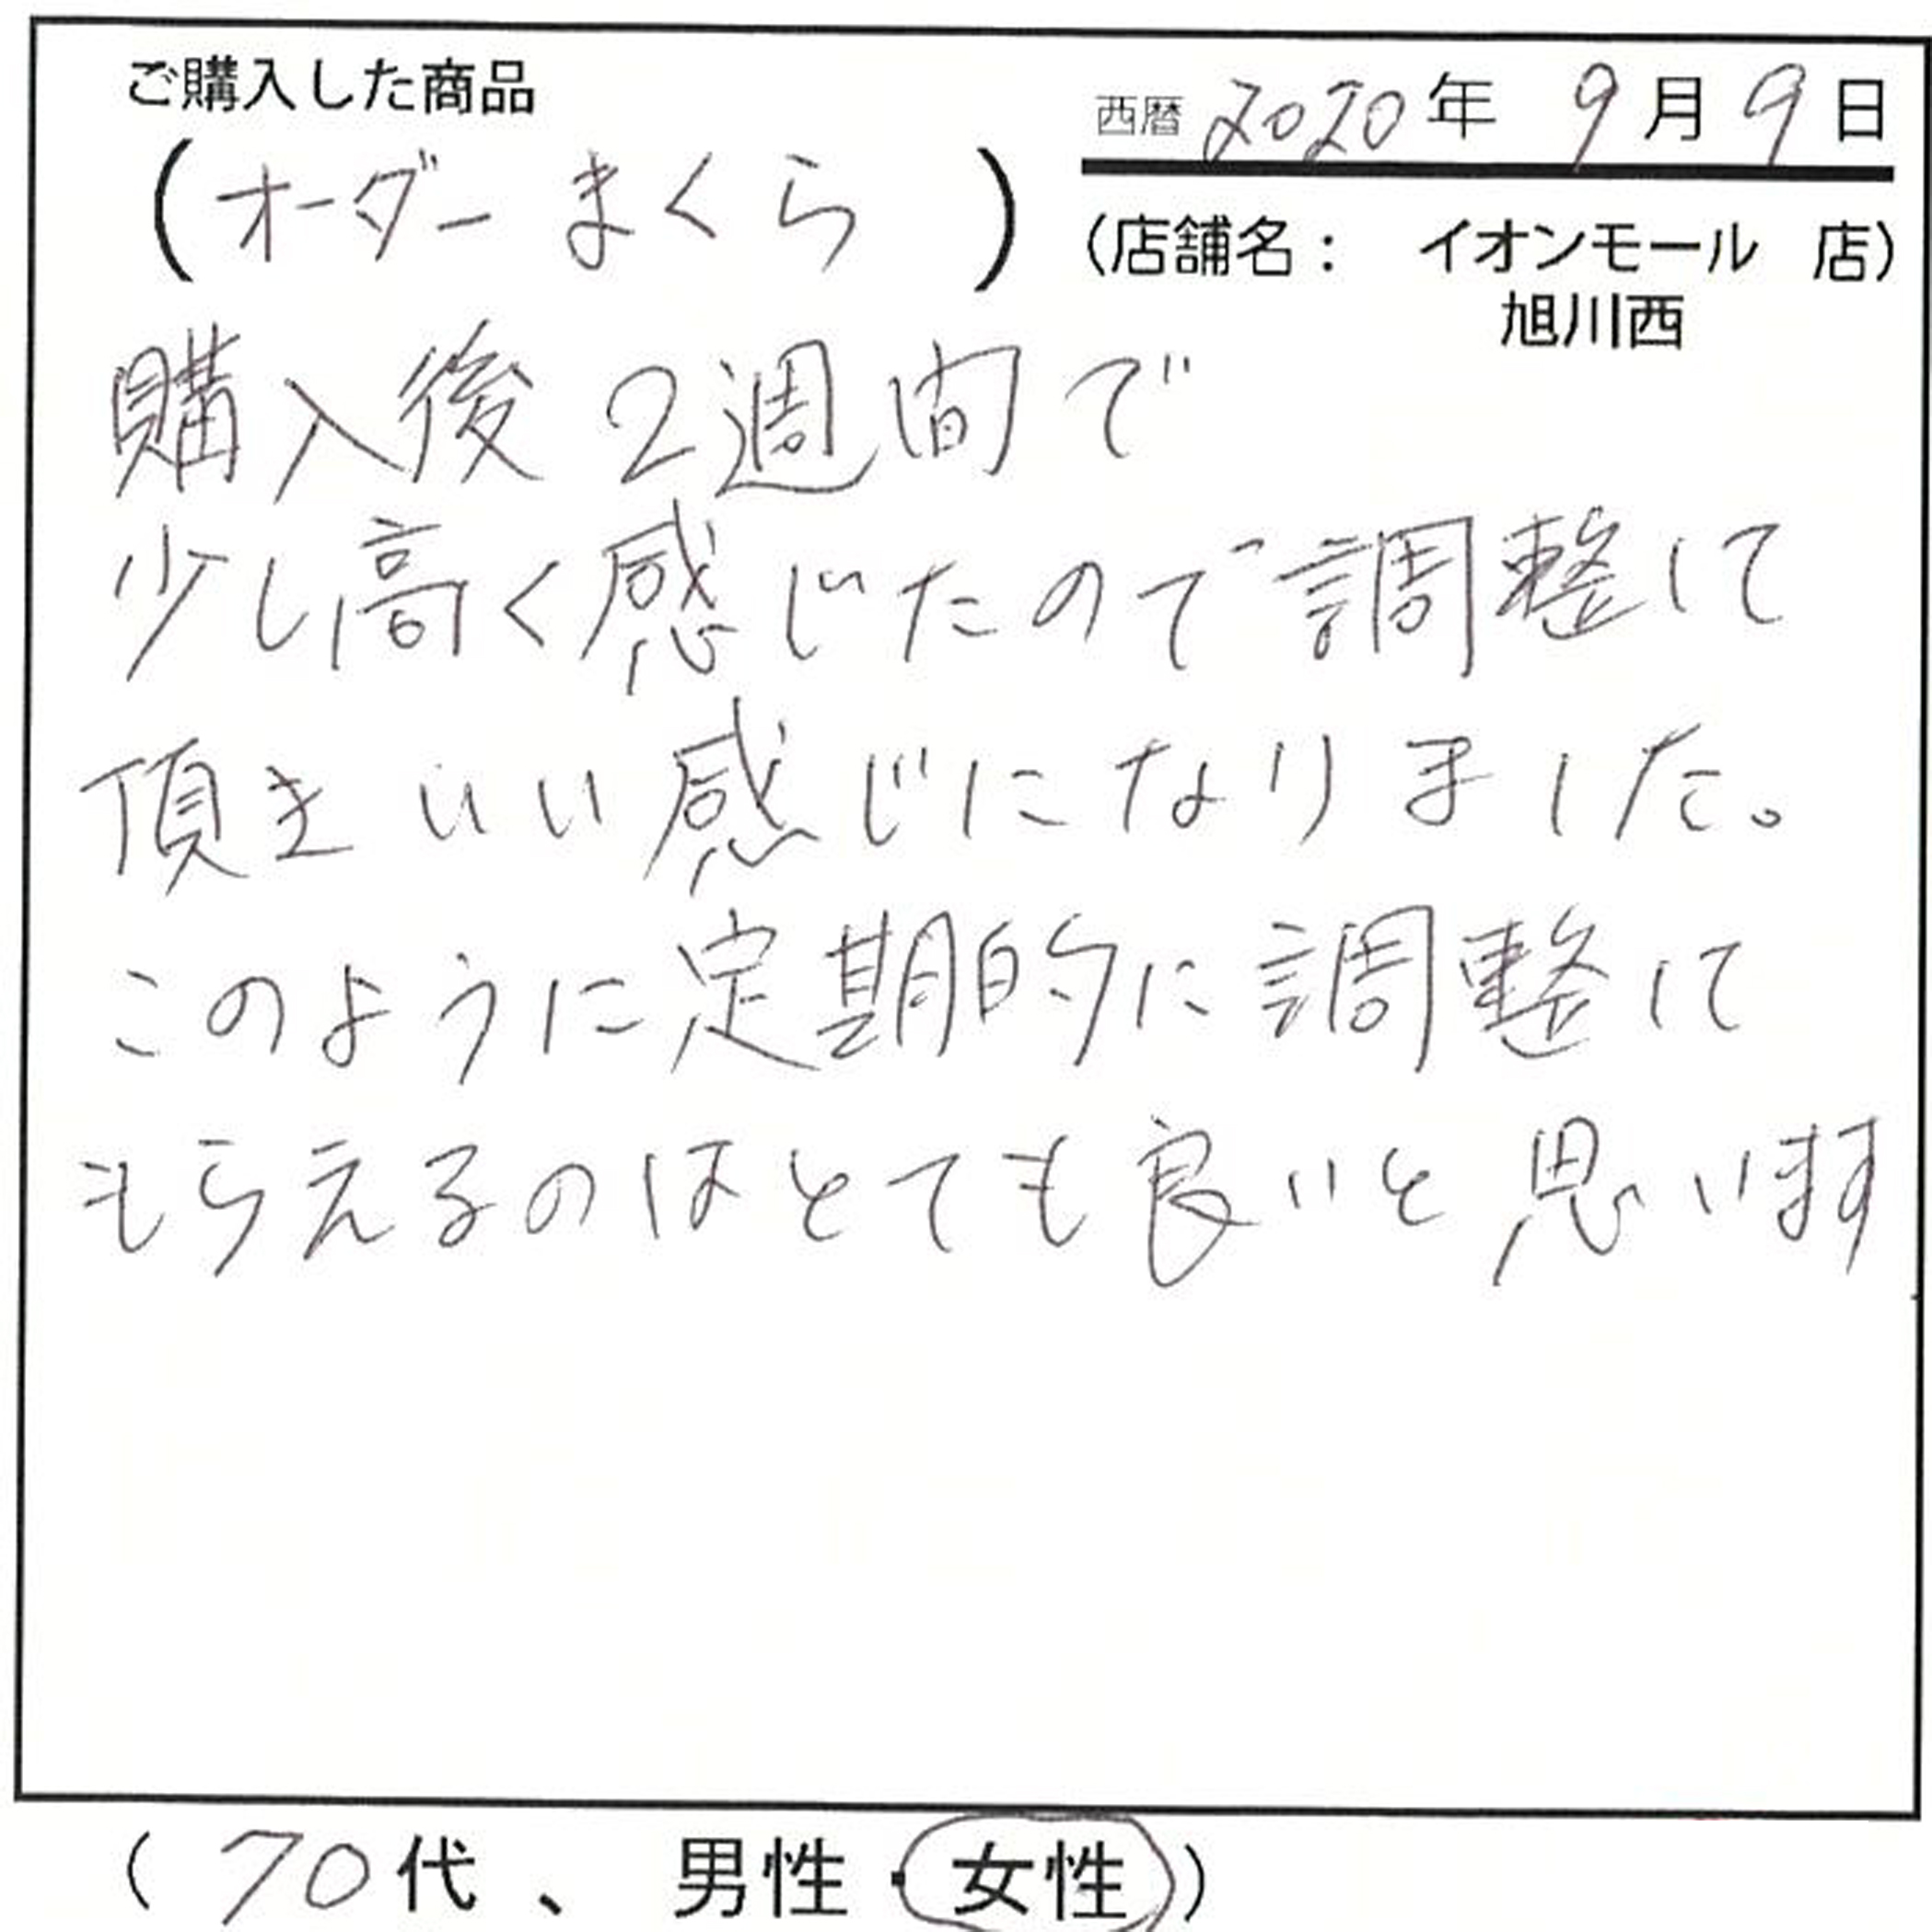 ご購入した商品
(オーダーまくら)
西暦 2020年 9月9日
(店舗名： イオンモール 店)
旭川西
購入後2週間で
少し高く感じたので調整して
頂きいい感じになりました。
このように定期的に調整して
もらえるのはとても良いと思います
( 70代 、 男性・女性 )